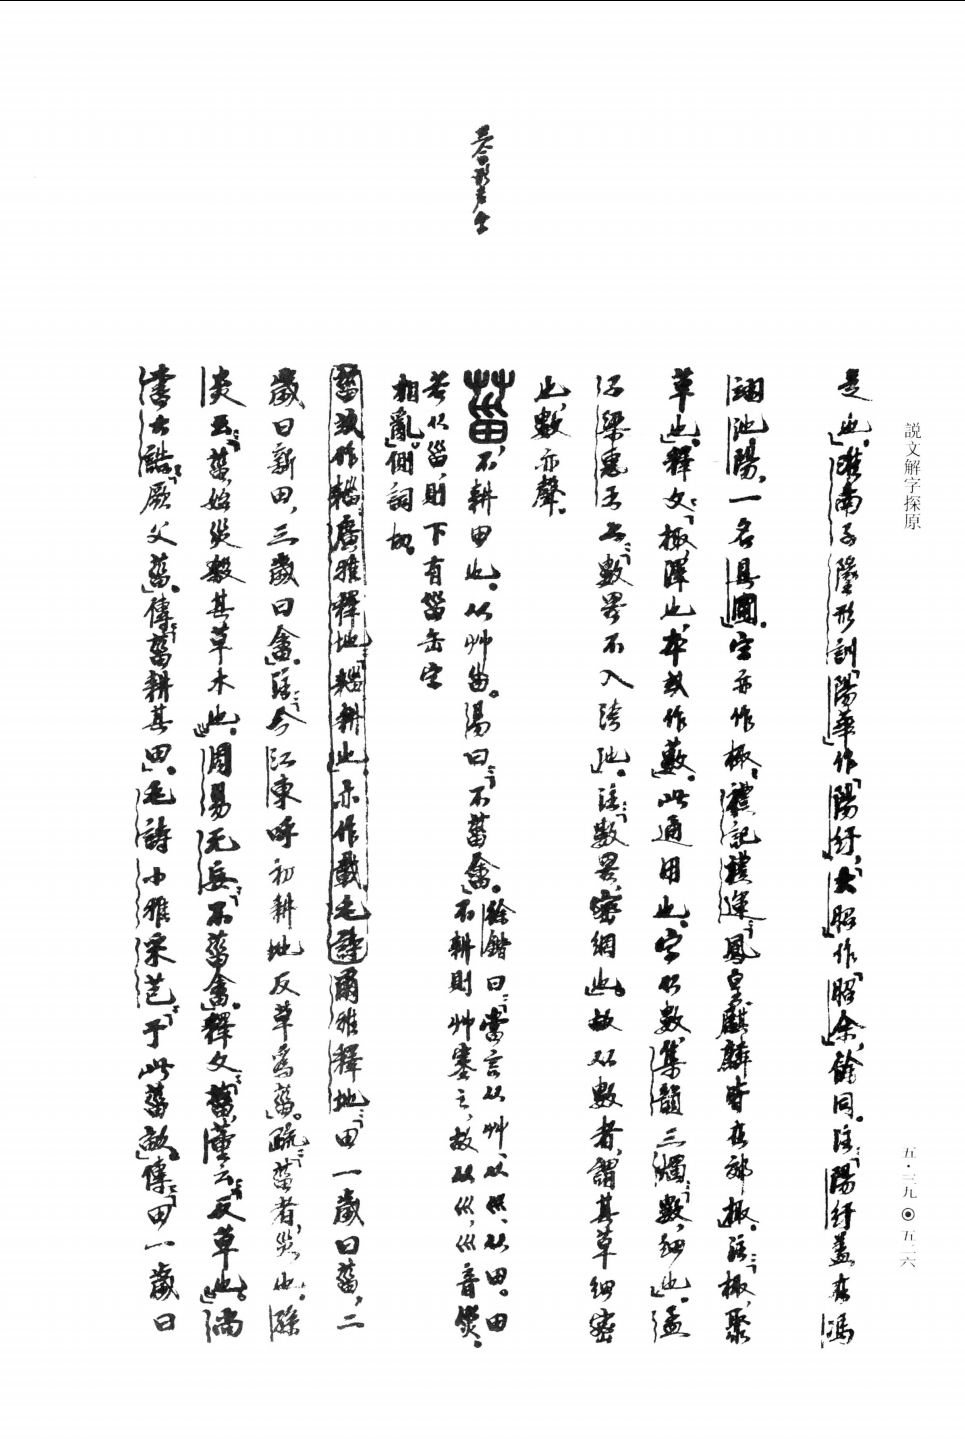 説文解字探原
五·三九◎五二六
是也。淮南子墬形訓「陽華」作「陽紆」,「大昭」作「昭余」,餘同。注:「陽紆蓋在馮
翊池陽,一名具圃。」字亦作棷。禮記禮運:「鳳皇麒麟皆在郊棷。」注:「棷,聚
草也。」釋文:「棷,澤也,本或作藪。」此通用也。字从數,集韻三燭:「數,細也。」孟
子梁惠王上:「數罟不入洿池。」注:「數罟,密網也。」故从數者,謂其草細密
也,數亦聲。
菑,不耕田也。从艸甾。易曰:「不菑畬。」徐鍇曰:「當言从艸、从巛、从田。田
不耕則艸塞之,故从巛,巛音烖。
若从甾,則下有甾缶字
相亂。」側詞切。
菑或作䎩,廣雅釋地:「䎩,耕也。」亦作㦲,毛詩
爾雅釋地:「田一歲曰菑,二
歲曰新田,三歲曰畬。」注:「今江東呼初耕地反草爲菑。」疏:「菑者,災也。」孫
炎云:「菑,始災殺其草木也。」周易无妄:「不菑畬。」釋文:「菑,董云:反草也。」尚
書大誥:「厥父菑。」傳:「菑耕其田。」毛詩小雅采芑:「于此菑畝。」傳:「田一歲曰